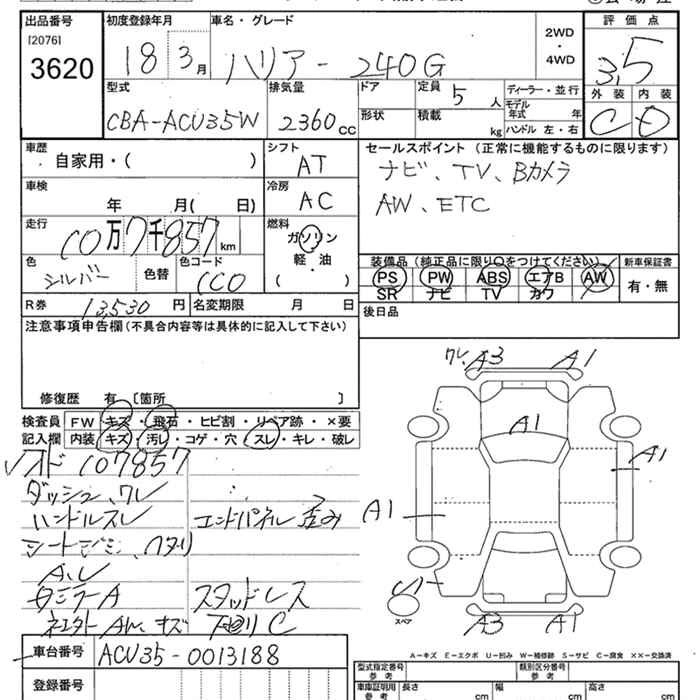 出品番号
[2076]
3620
初度登録年月
18 3月
車名・グレード
ハリアー 240G
2WD
・
4WD
評価点
3.5
外装 内装
C D
型式
CBA-ACU35W
排気量
2360cc
ドア
形状
定員 5人
積載 kg
ディーラー・並行
モデル年式 年
ハンドル 左・右
車歴
自家用・( )
シフト
AT
車検
年 月( 日)
冷房
AC
走行
10万7千857km
燃料
ガソリン
軽・油
( )
色
シルバー
色替
色コード
1C0
R券 13,530円
名変期限 月 日
セールスポイント (正常に機能するものに限ります)
ナビ、TV、Bカメラ
AW、ETC
装備品 (純正品に限り〇をつけてください)
PS PW ABS エアB AW
SR ナビ TV カワ
新車保証書
有・無
後日品
注意事項申告欄 (不具合内容等は具体的に記入して下さい)
修復歴 有 〔箇所 〕
検査員記入欄
FW キズ・飛石・ヒビ割・リペア跡・×要
内装 キズ・汚レ・コゲ・穴・スレ・キレ・破レ
107857
ダッシュ、ワレ
ハンドルスレ
エンドパネル歪み
A、U
スタッドレス
下回りC
車台番号 ACU35-0013188
登録番号
ワレ A3 A1
A1
A1
A1
スペア
A3 A1
A-キズ E-エクボ U-凹み W-補修跡 S-サビ C-腐食 XX-交換済
型式指定番号
参考
類別区分番号
参考
車庫証明用
参考
長さ cm
幅 cm
高さ cm